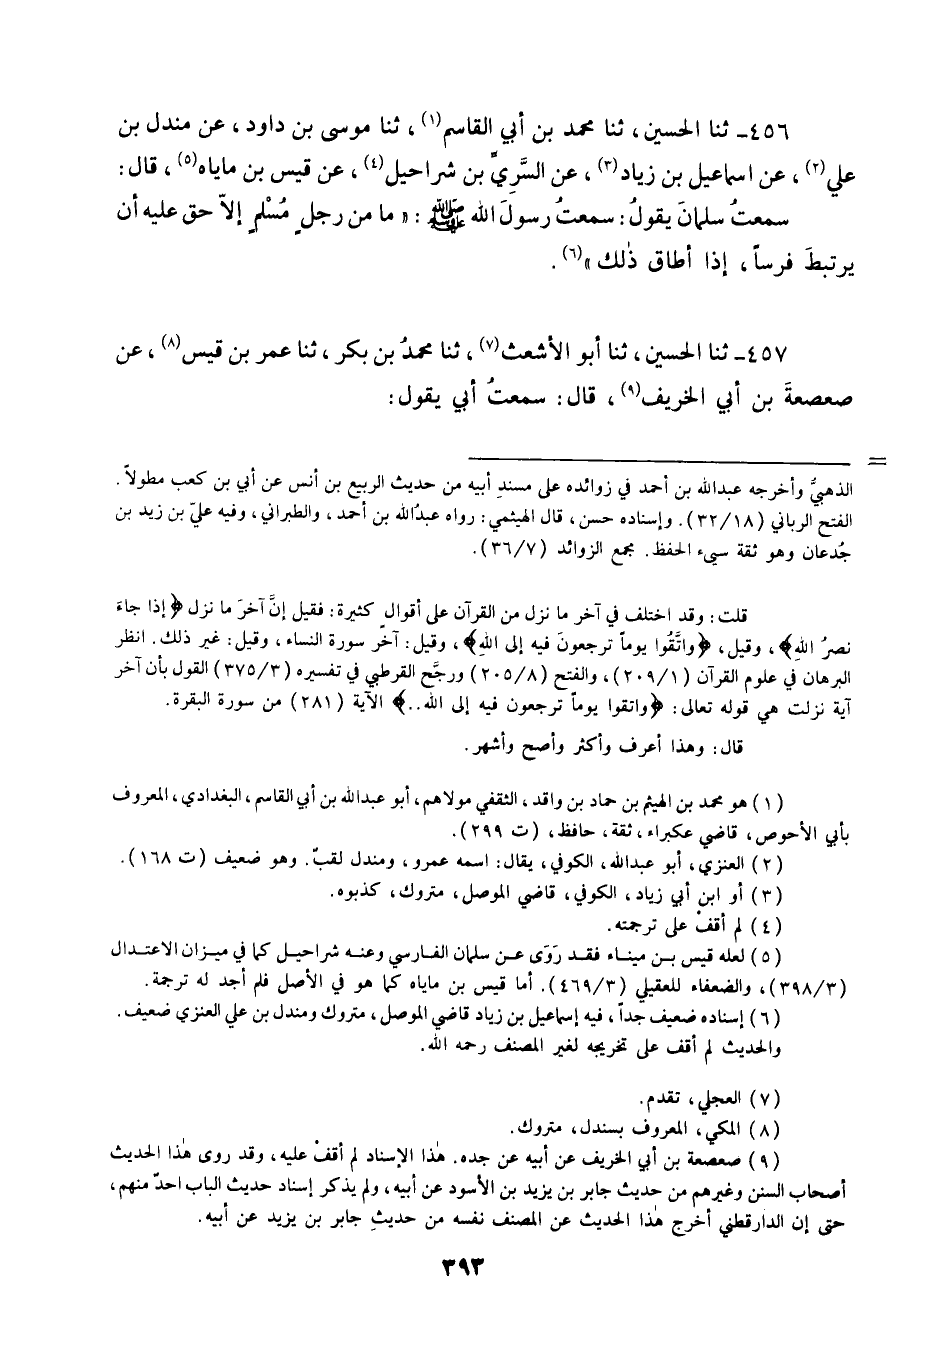 ٤٥٦ـ ثنا الحسين، ثنا محمد بن أبي القاسم(١)، ثنا موسى بن داود، عن مندل بن
علي(٢)، عن اسماعيل بن زياد(٣)، عن السَّريِّ بن شراحيل(٤)، عن قيس بن ماياه(٥)، قال:
سمعتُ سلمانَ يقولُ: سمعتُ رسولَ الله ﷺ: «ما من رجلٍ مُسْلمٍ إلاّ حق عليه أن
يرتبطَ فرساً، إذا أطاق ذٰلك»(٦).
٤٥٧ـ ثنا الحسين، ثنا أبو الأشعث(٧)، ثنا محمدُ بن بكر، ثنا عمر بن قيس(٨)، عن
صعصعةَ بن أبي الخريف(٩)، قال: سمعتُ أبي يقول:
=
الذهبيُّ وأخرجه عبدالله بن أحمد في زوائده على مسندِ أبيه من حديث الربيع بن أنس عن أبي بن كعب مطولاً.
الفتح الرباني (٣٢/١٨). وإسناده حسن، قال الهيثمي: رواه عبدُالله بن أحمد، والطبراني، وفيه عليّ بن زيد بن
جُدعان وهو ثقة سيء الحفظ. مجمع الزوائد (٣٦/٧).
قلت: وقد اختلف في آخر ما نزل من القرآن على أقوالٍ كثيرة: فقيل إنَّ آخرَ ما نزل ﴿إذا جاءَ
نصرُ اللهِ﴾، وقيل، ﴿واتَّقُوا يوماً ترجعونَ فيه إلى اللهِ﴾، وقيل: آخر سورة النساء، وقيل: غير ذلك. انظر
البرهان في علوم القرآن (٢٠٩/١)، والفتح (٢٠٥/٨) ورجَّح القرطبي في تفسيره (٣٧٥/٣) القول بأن آخر
آية نزلت هي قوله تعالى: ﴿واتقوا يوماً ترجعون فيه إلى الله..﴾ الآية (٢٨١) من سورة البقرة.
قال: وهذا أعرف وأكثر وأصح وأشهر.
(١) هو محمد بن الهيثم بن حماد بن واقد، الثقفي مولاهم، أبو عبدالله بن أبي القاسم، البغدادي، المعروف
بأبي الأحوص، قاضي عكبراء، ثقة، حافظ، (ت ٢٩٩).
(٢) العنزي، أبو عبدالله، الكوفي، يقال: اسمه عمرو، ومندل لقبٌ. وهو ضعيف (ت ١٦٨).
(٣) أو ابن أبي زياد، الكوفي، قاضي الموصل، متروك، كذبوه.
(٤) لم أقفْ على ترجمته.
(٥) لعله قيس بن ميناء فقد رَوَى عن سلمان الفارسي وعنه شراحيل كما في ميزان الاعتدال
(٣٩٨/٣)، والضعفاء للعقيلي (٤٦٩/٣). أما قيس بن ماياه كما هو في الأصل فلم أجد له ترجمة.
(٦) إسناده ضعيف جداً، فيه إسماعيل بن زياد قاضي الموصل، متروك ومندل بن علي العنزي ضعيف.
والحديث لم أقف على تخريجه لغير المصنف رحمه الله.
(٧) العجلي، تقدم.
(٨) المكي، المعروف بسندل، متروك.
(٩) صعصعة بن أبي الخريف عن أبيه عن جده. هٰذا الإسناد لم أقفْ عليه، وقد روى هٰذا الحديث
أصحاب السنن وغيرهم من حديث جابر بن يزيد بن الأسود عن أبيه، ولم يذكر إسناد حديث الباب احدٌ منهم،
حتى إن الدارقطني أخرج هٰذا الحديث عن المصنف نفسه من حديثِ جابر بن يزيد عن أبيه.
٣٩٣